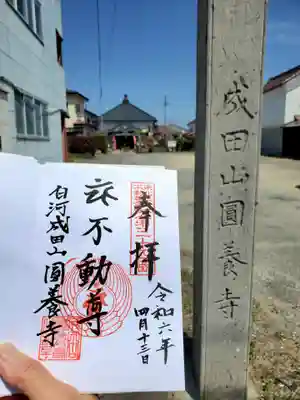 奉拝
令和六年
四月十三日
不動尊
白河成田山圓養寺
成田山圓養寺